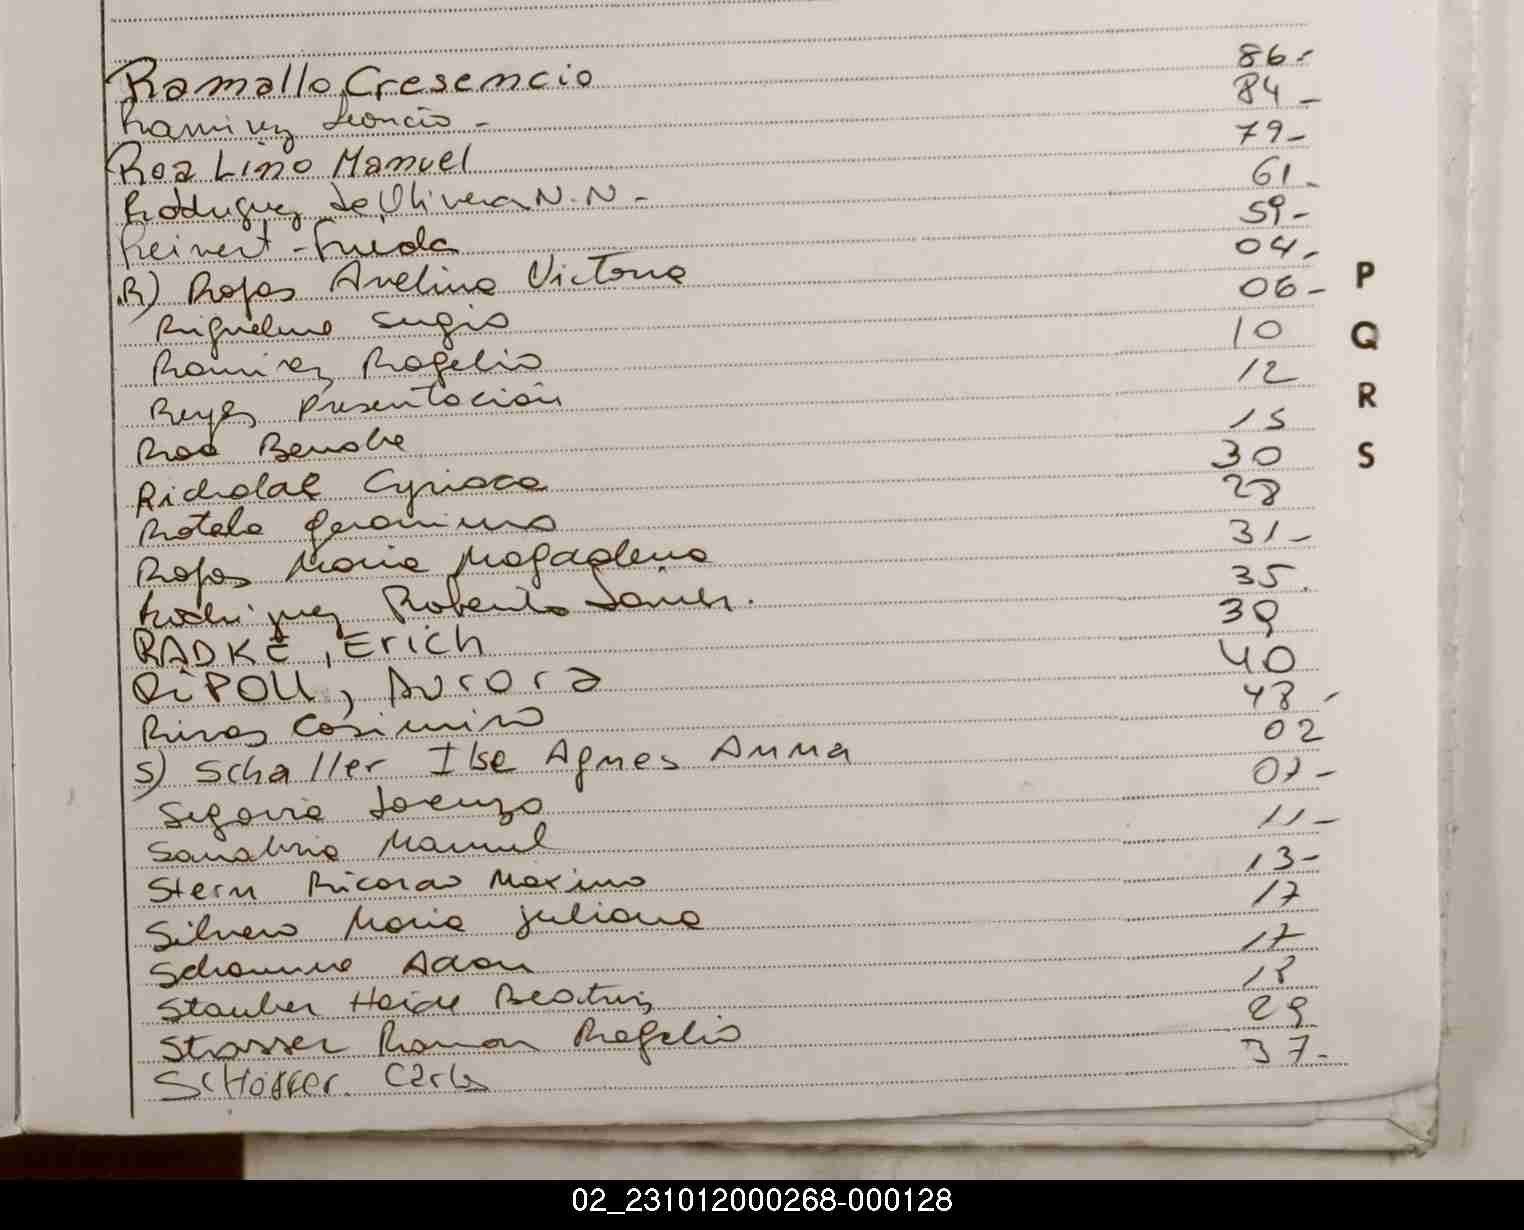 Ramallo Cresencio 86-
Ramirez Leoncio - 84-
Roa Lino Manuel 79-
Rodriguez de Olivera N.N - 61-
Reinert - Frieda 59-
R) Rojas Avelina Victoria 04-
Riquelme Sergio 06-
Ramirez Rogelio 10
Reyes Presentación 12
Roa 15
Cyriaca 30
Rotela Geronimo 28
Rojas Maria Magadlena 31-
Rodriguez Roberto 35.
RADKE, Erich 39
RiPOLL, Aurora 40
Rivas Casimiro 48-
S) Schaller Ilse Agnes Anna 02
Segovia Lorenzo 07-
Sanabria Manuel 11-
Stern Ricardo Maximo 13-
Silvero Maria Juliana 17
Adan 17
Stauber Heide Beatriz 18
Strasser Ramon Rogelio 29
Carlos 37-
P
Q
R
S
02_231012000268-000128